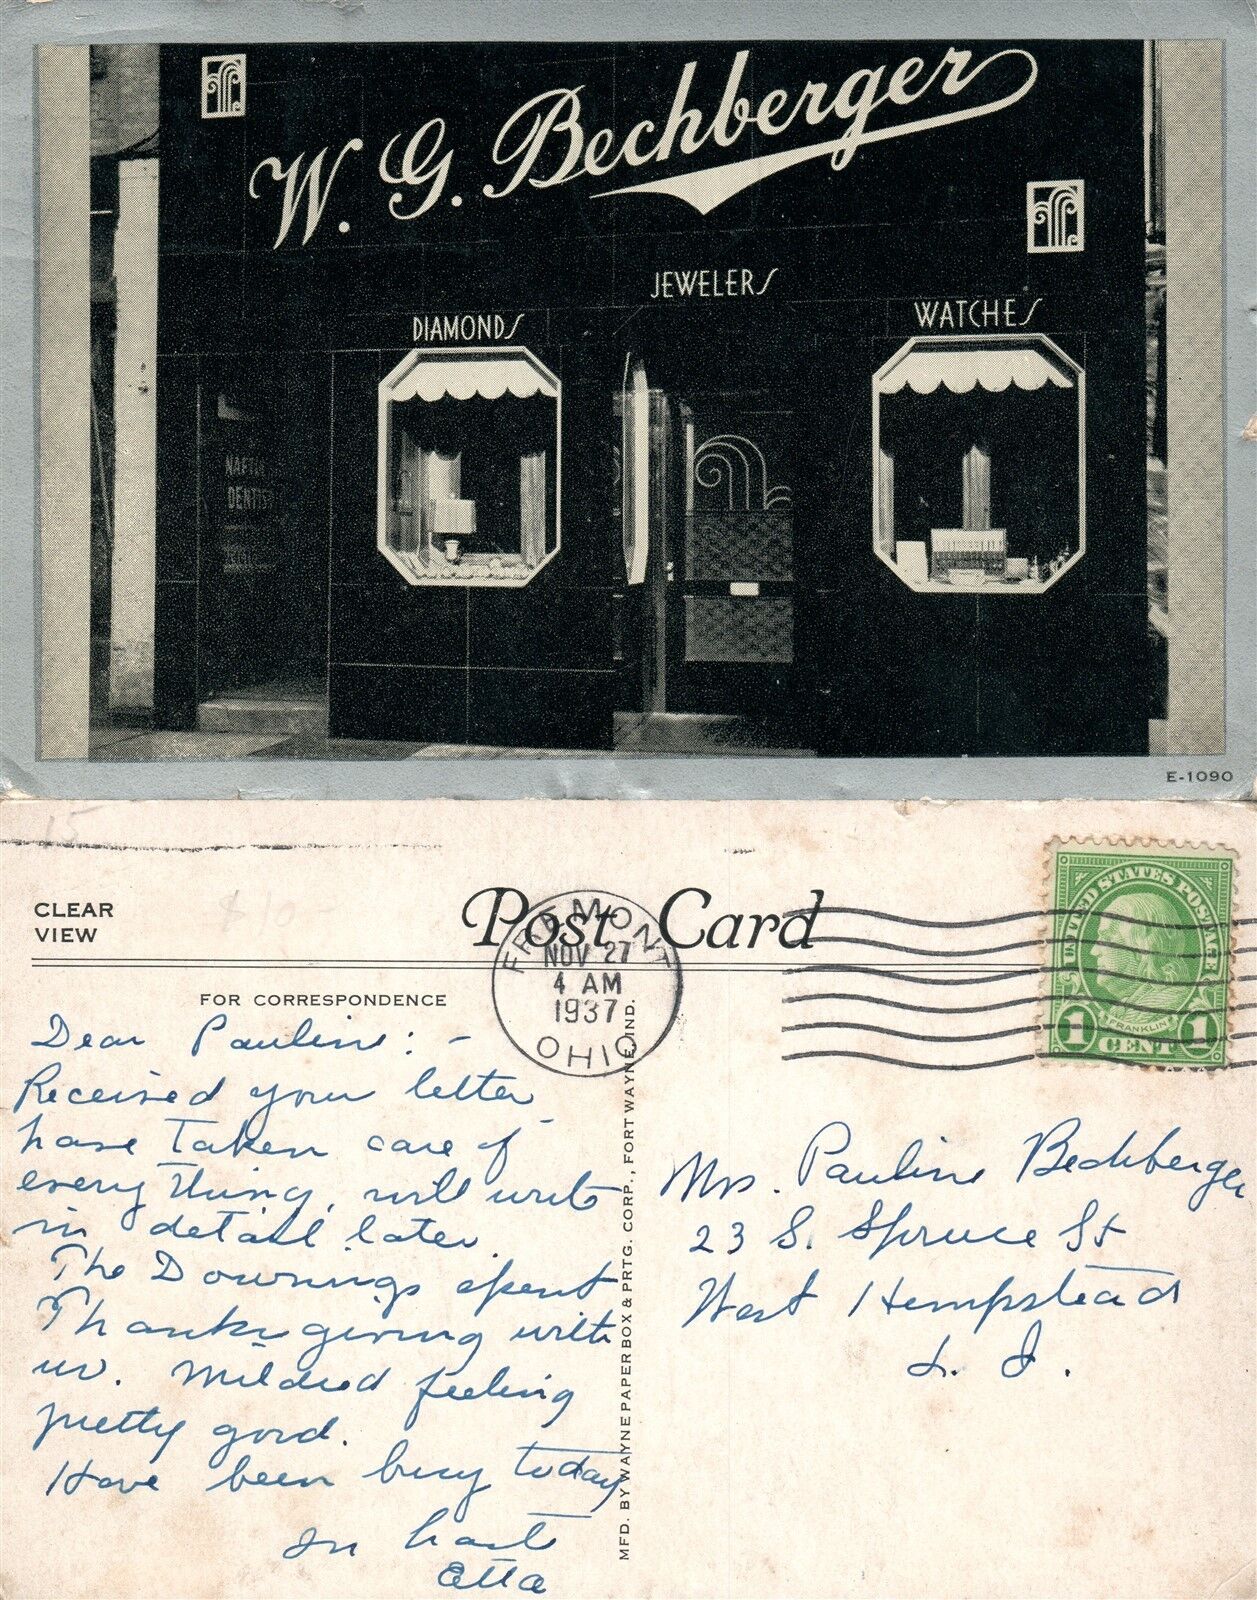 W. G. Bechberger
JEWELERS
DIAMONDS
WATCHES
DENTIST
E-1090
15
$10-
CLEAR
VIEW
Post Card
FREMONT
NOV 27
4 AM
1937
OHIO
UNITED STATES POSTAGE
FRANKLIN
1 CENT 1
FOR CORRESPONDENCE
MFD. BY WAYNE PAPER BOX & PRTG. CORP., FORT WAYNE, IND.
Dear Pauline: -
Received your letter
have taken care of
everything, will write
in detail later.
The Downings spent
Thanksgiving with
us. Mildred feeling
pretty good.
Have been busy today
In haste
Etta
Mrs. Pauline Bechberger
23 S. Spruce St
West Hempstead
L. I.